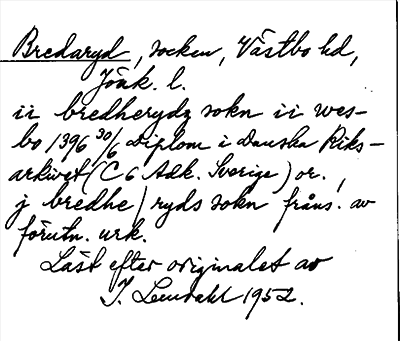 Bredaryd, socken, Västbo hd,
Jönk. l.
ii bredherydz sokn ii wes-
bo 1396 30/6 Diplom i Danska Riks-
arkivet (C 6 Adk. Sverige) or.
j bredhe/ryds sokn fråns. av
förutn. urk.
Läst efter originalet av
I. Lundahl 1952.